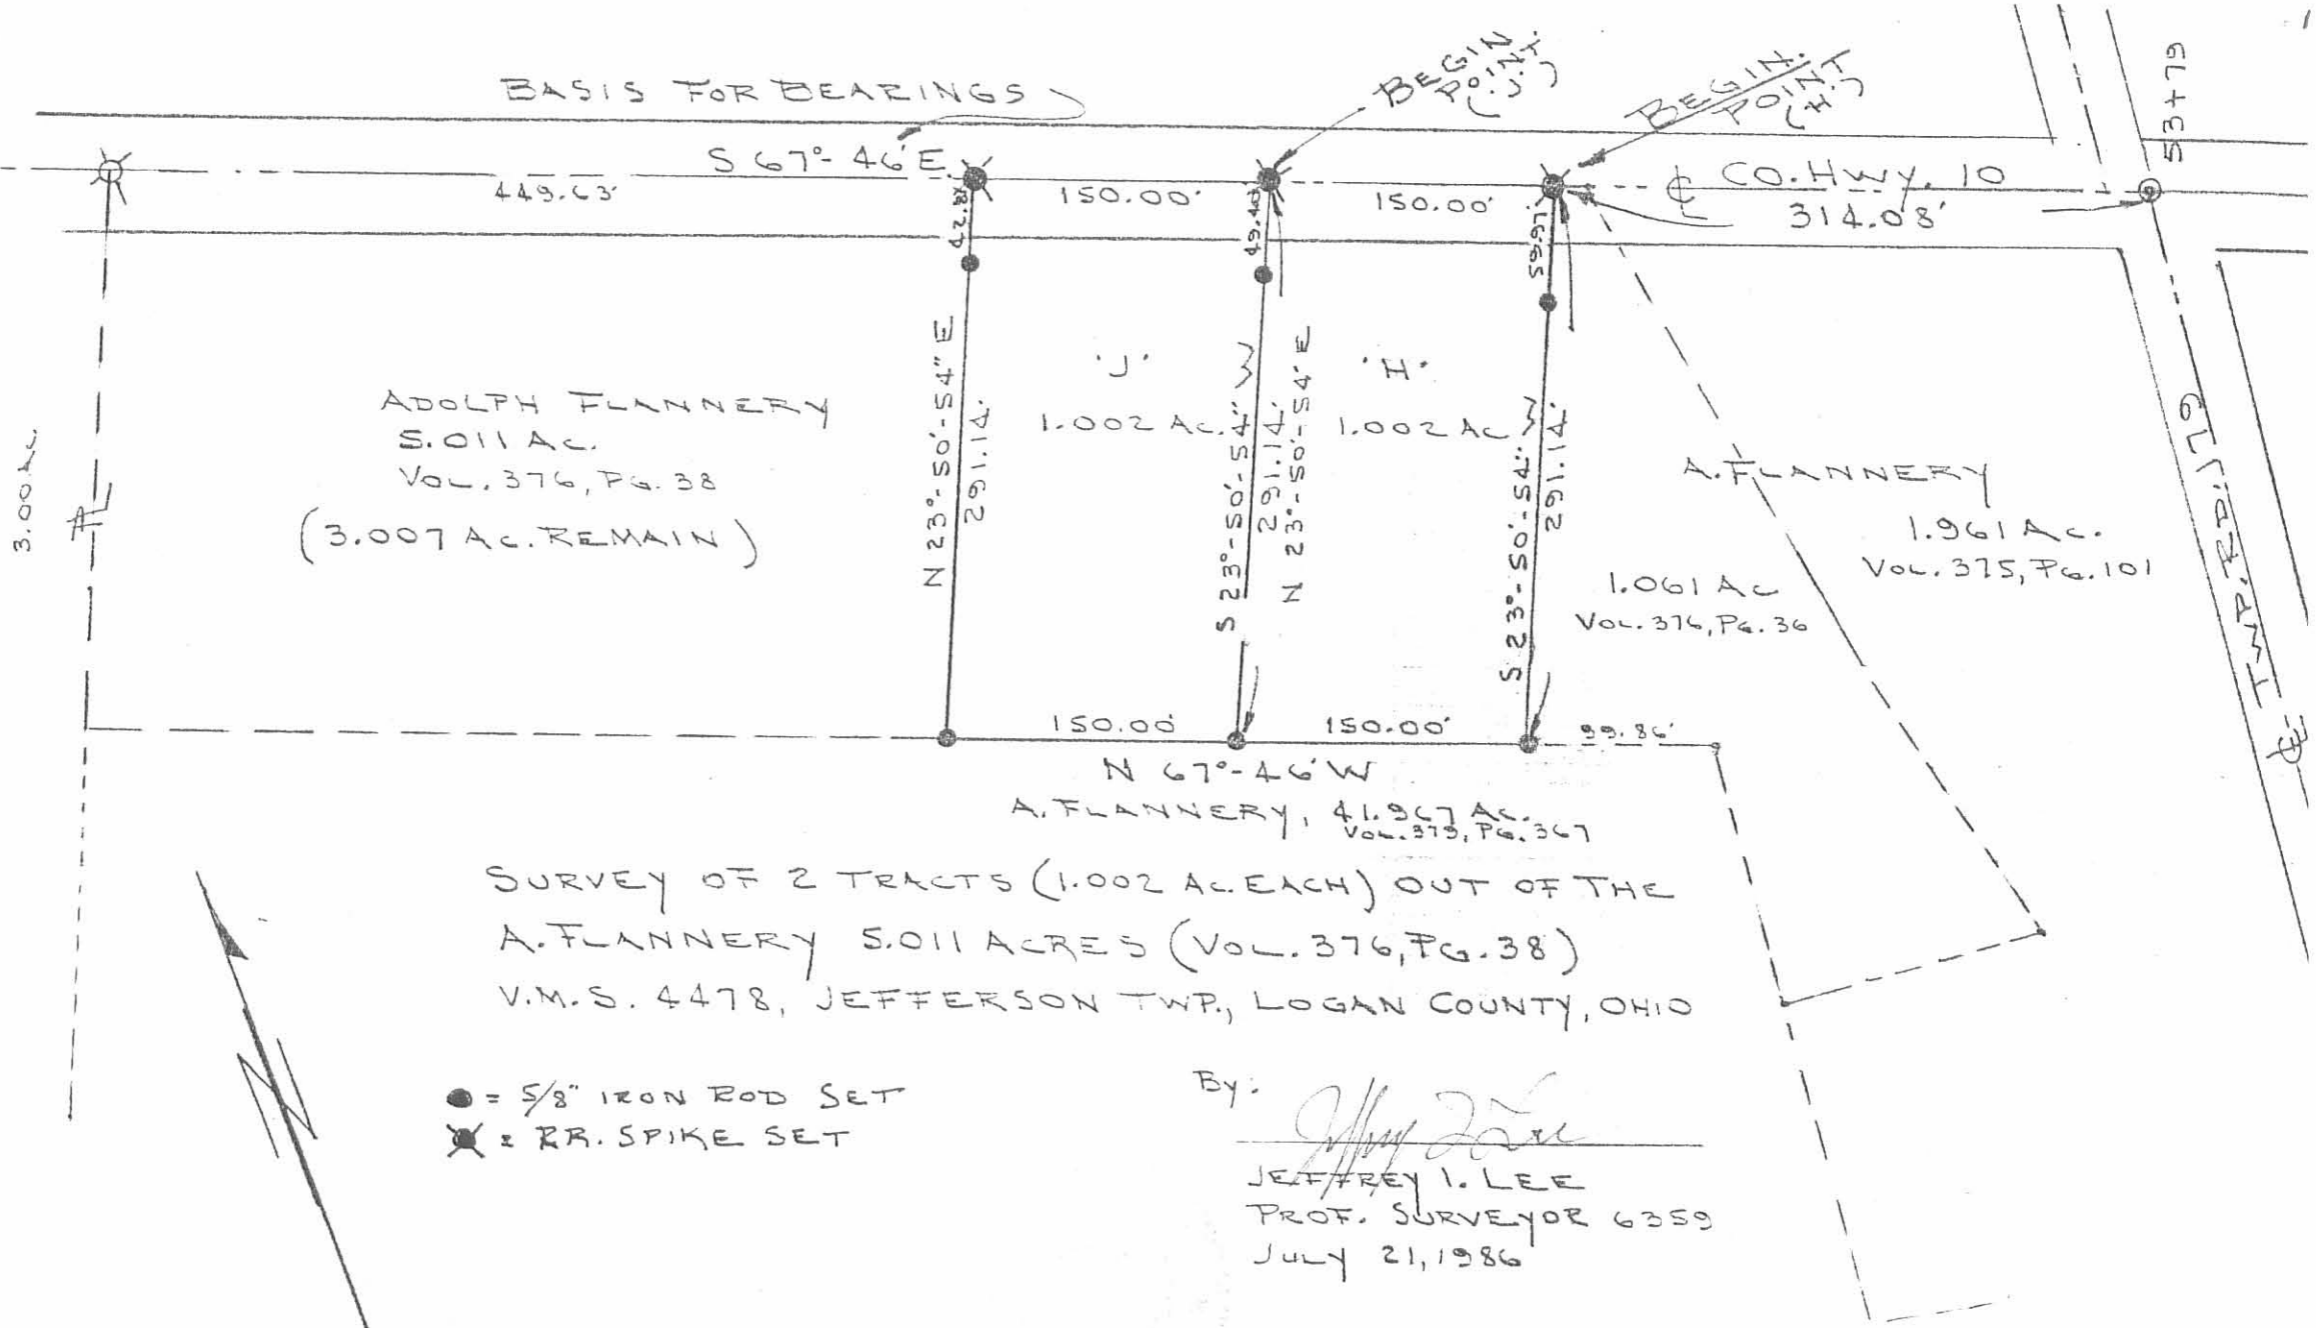 BASIS FOR BEARINGS
BEGIN.
POINT
(J.)
BEGIN.
POINT
(H.)
53+79
S 67°-46' E
449.63'
150.00'
150.00'
℄ CO. HWY. 10
314.08'
49.40'
59.97'
ADOLPH FLANNERY
5.011 AC.
VOL. 376, PG. 38
(3.007 AC. REMAIN)
3.00 AC.
N 23°-50'-54" E
291.14'
'J'
1.002 AC.
S 23°-50'-54" W
291.14'
N 23°-50'-54" E
'H'
1.002 AC
S 23°-50'-54" W
291.14'
A. FLANNERY
1.961 AC.
VOL. 375, PG. 101
1.061 AC
VOL. 376, PG. 36
℄ TWP. RD. 179
150.00'
150.00'
99.86'
N 67°-46' W
A. FLANNERY, 41.967 AC.
VOL. 379, PG. 367
SURVEY OF 2 TRACTS (1.002 AC. EACH) OUT OF THE
A. FLANNERY 5.011 ACRES (VOL. 376, PG. 38)
V.M.S. 4478, JEFFERSON TWP., LOGAN COUNTY, OHIO
● = 5/8" IRON ROD SET
= RR. SPIKE SET
By:
JEFFREY I. LEE
PROF. SURVEYOR 6359
JULY 21, 1986